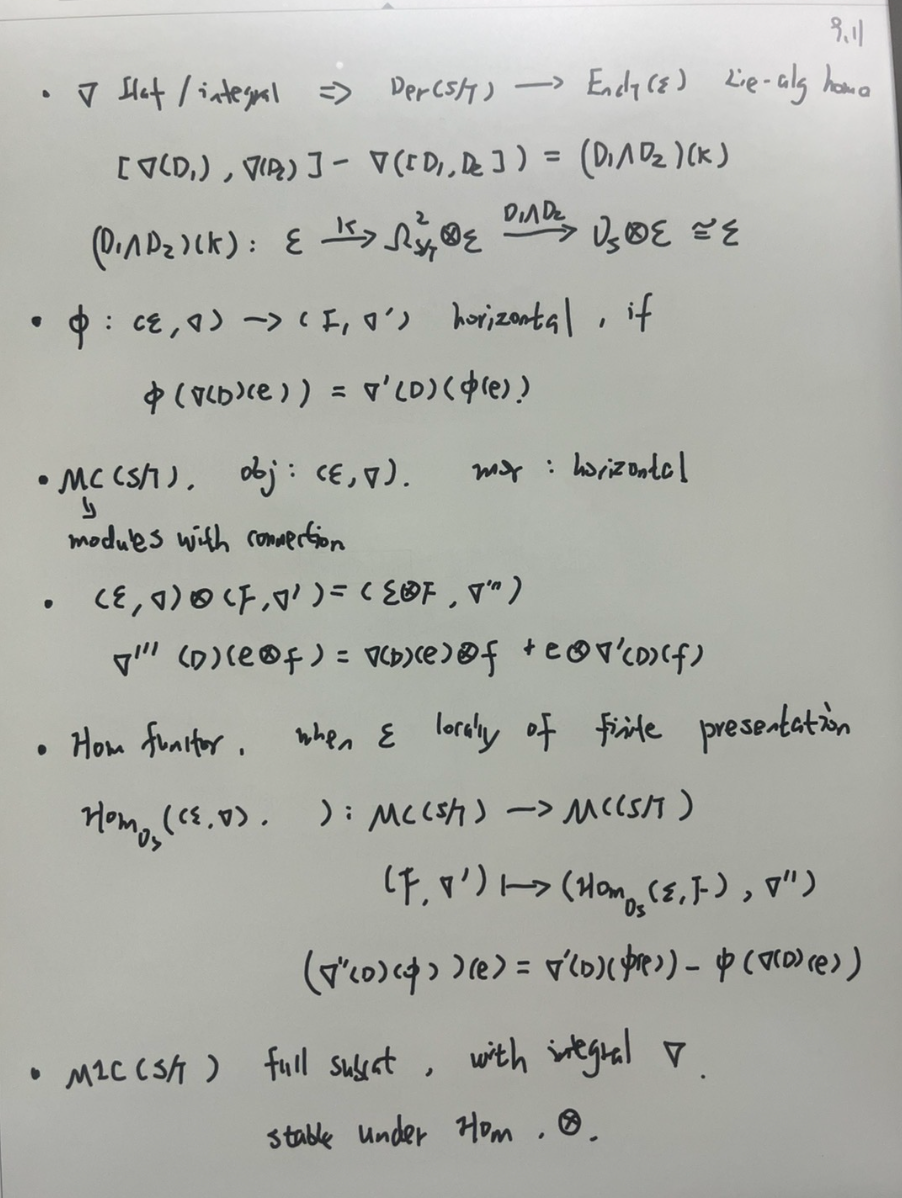 9.11
• ∇ flat / integral ⇒ Der(S/T) → End_T(ℰ) Lie-alg homo
[∇(D₁), ∇(D₂)] - ∇([D₁, D₂]) = (D₁∧D₂)(K)
(D₁∧D₂)(K) : ℰ —K→ Ω²_{S/T}⊗ℰ —D₁∧D₂→ O_S⊗ℰ ≅ ℰ
• ϕ : (ℰ, ∇) → (F, ∇') horizontal, if
ϕ(∇(D)(e)) = ∇'(D)(ϕ(e))
• MC(S/T). obj : (ℰ, ∇). mor : horizontal
↳
modules with connection
• (ℰ, ∇)⊗(F, ∇') = (ℰ⊗F, ∇''')
∇'''(D)(e⊗f) = ∇(D)(e)⊗f + e⊗∇'(D)(f)
• Hom funtor. when ℰ locally of finite presentation
Hom_{O_S}((ℰ, ∇). ) : MC(S/T) → MC(S/T)
(F, ∇') ↦ (Hom_{O_S}(ℰ, F), ∇'')
(∇''(D)(ϕ))(e) = ∇'(D)(ϕ(e)) - ϕ(∇(D)(e))
• MIC(S/T) full subcat, with integral ∇.
stable under Hom. ⊗.